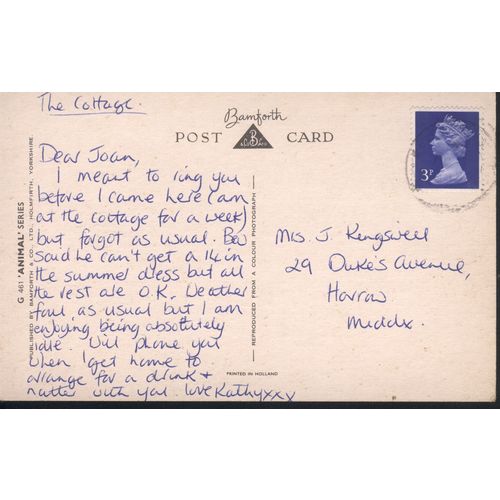 The Cottage.
Dear Joan,
I meant to ring you
before I came here (am
at the cottage for a week)
but forgot as usual. Bev
said he can't get a 14 in
the summer dress but all
the rest are O.K. Weather
foul as usual but I am
enjoying being absolutely
idle. Will phone you
when I get home to
arrange for a drink +
natter with you. love Kathyxxx
Bamforth
POST B CARD
3P
Mrs. J. Kingswell
29 Duke's Avenue,
Harrow
Middx.
G 461 'ANIMAL' SERIES
PUBLISHED BY BAMFORTH & CO. LTD., HOLMFIRTH, YORKSHIRE.
REPRODUCED FROM A COLOUR PHOTOGRAPH
PRINTED IN HOLLAND